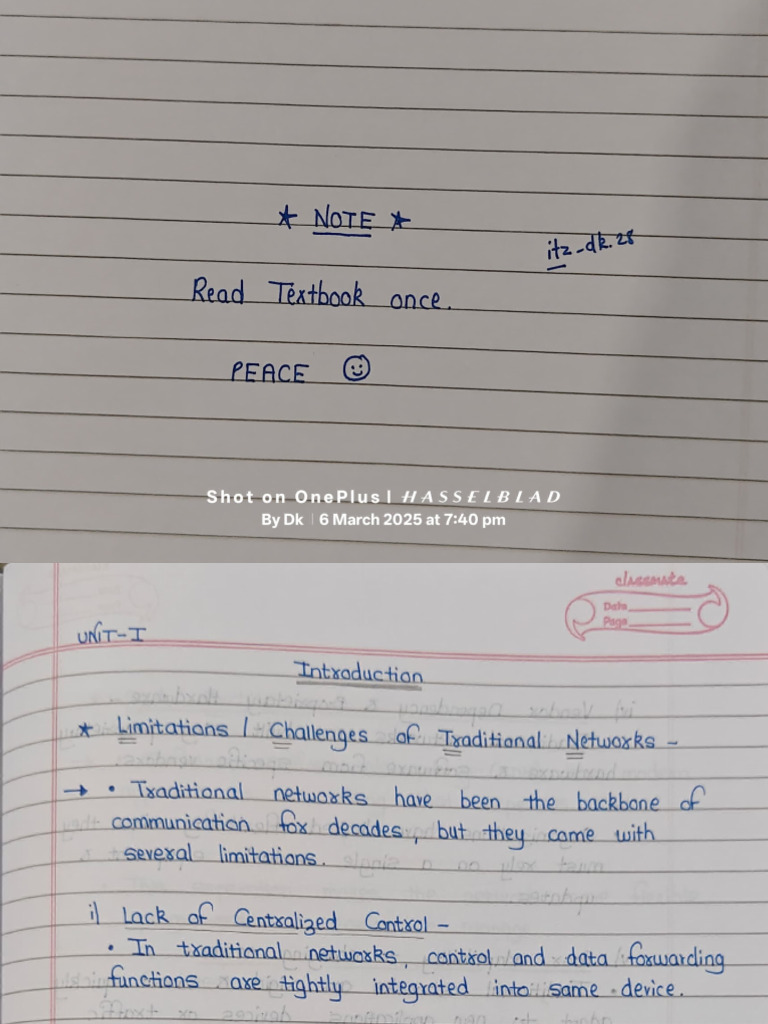 ★ NOTE ★
itz-dk.28
Read Textbook once.
PEACE ☺
Shot on OnePlus | HASSELBLAD
By Dk | 6 March 2025 at 7:40 pm
classmate
Date
Page
UNIT-I
Introduction
* Limitations / Challenges of Traditional Networks -
→ • Traditional networks have been the backbone of
communication for decades, but they come with
several limitations.
i) Lack of Centralized Control -
• In traditional networks, control and data forwarding
functions are tightly integrated into same device.